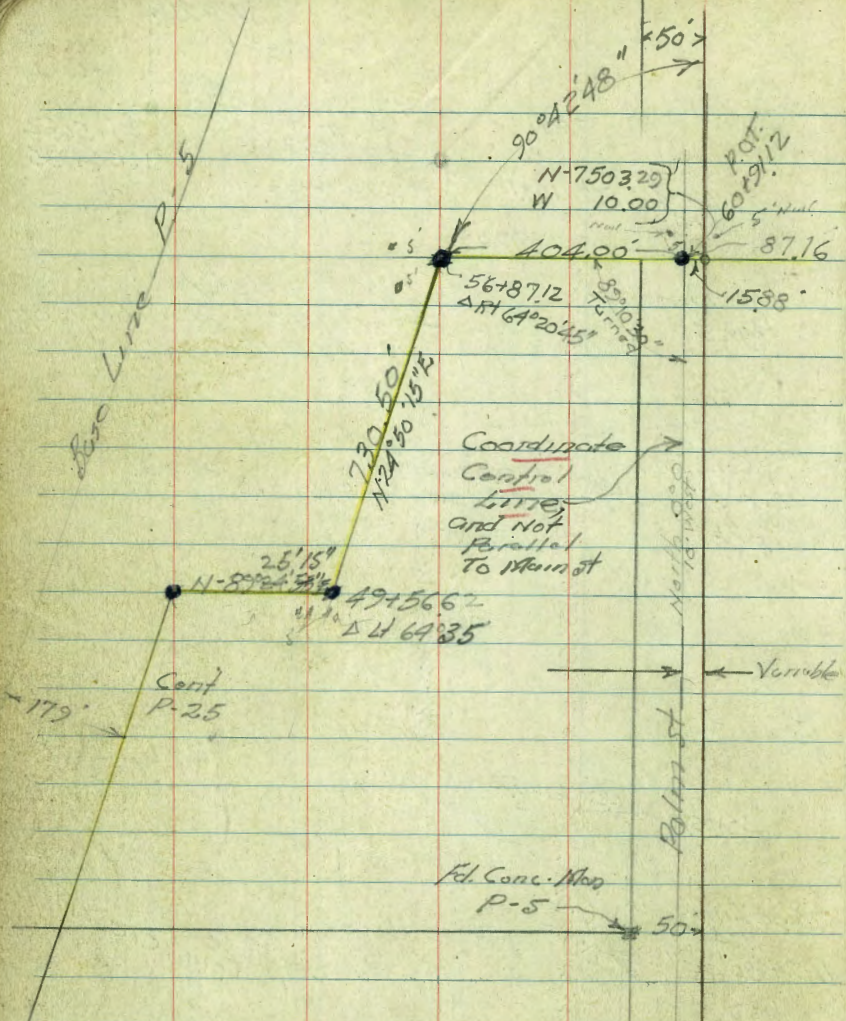 50'
90°42'48"
P.O.T.
60+91.12
N-7503.29
W 10.00
5' Nail
Base Line P-5
5'
5'
404.00'
5'
87.16
15.88
56+87.12
Δ Rt 64°20'45"
89°10'30"
Turned
730.50'
N-24°50'15"E
Coordinate
Control
Line,
and Not
Parallel
To Main st
North
10' West
25'15"
N-89°
49+56.62
Δ Lt 64°35'
5'
Variable
Cont
P-25
179'
Palm St
Fd. Conc. Mon
P-5
50'